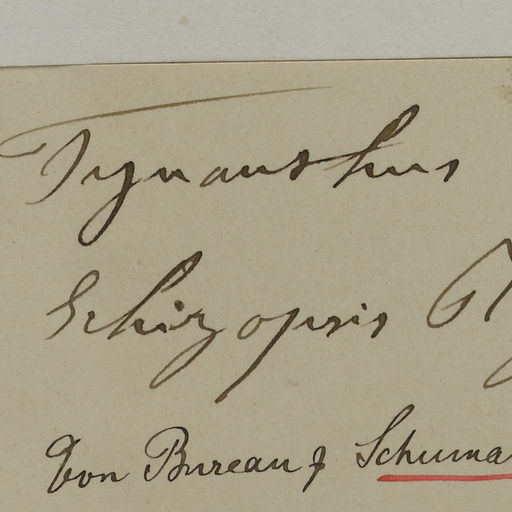 Tynansthus
Schizopsis
Von Bureau & Schuma